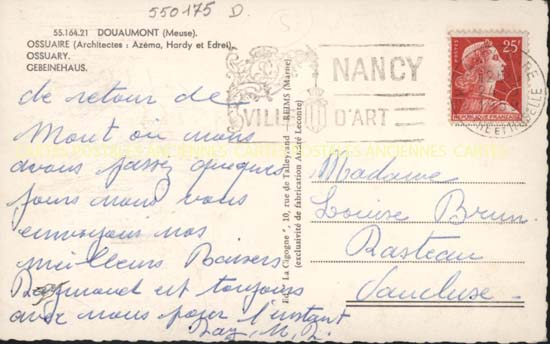 550175 D
55.164.21 DOUAUMONT (Meuse).
OSSUAIRE (Architectes : Azéma, Hardy et Edrei).
OSSUARY.
GEBEINHAUS.
NANCY
VILLE D'ART
POSTES
25F
REPUBLIQUE FRANÇAISE
MEURTHE ET MOSELLE
CARTES POSTALES ANCIENNES
de retour de
Mont où nous
avons passez quelques
jours nous vous
envoyons nos
meilleurs Baisers
Raymond est toujours
avec nous pour l'instant
Edit. "La Cigogne", 10, rue de Talleyrand — REIMS (Marne)
(exclusivité de fabrication André Leconte)
Madame
Louise Brun
Rasteau
Vaucluse.